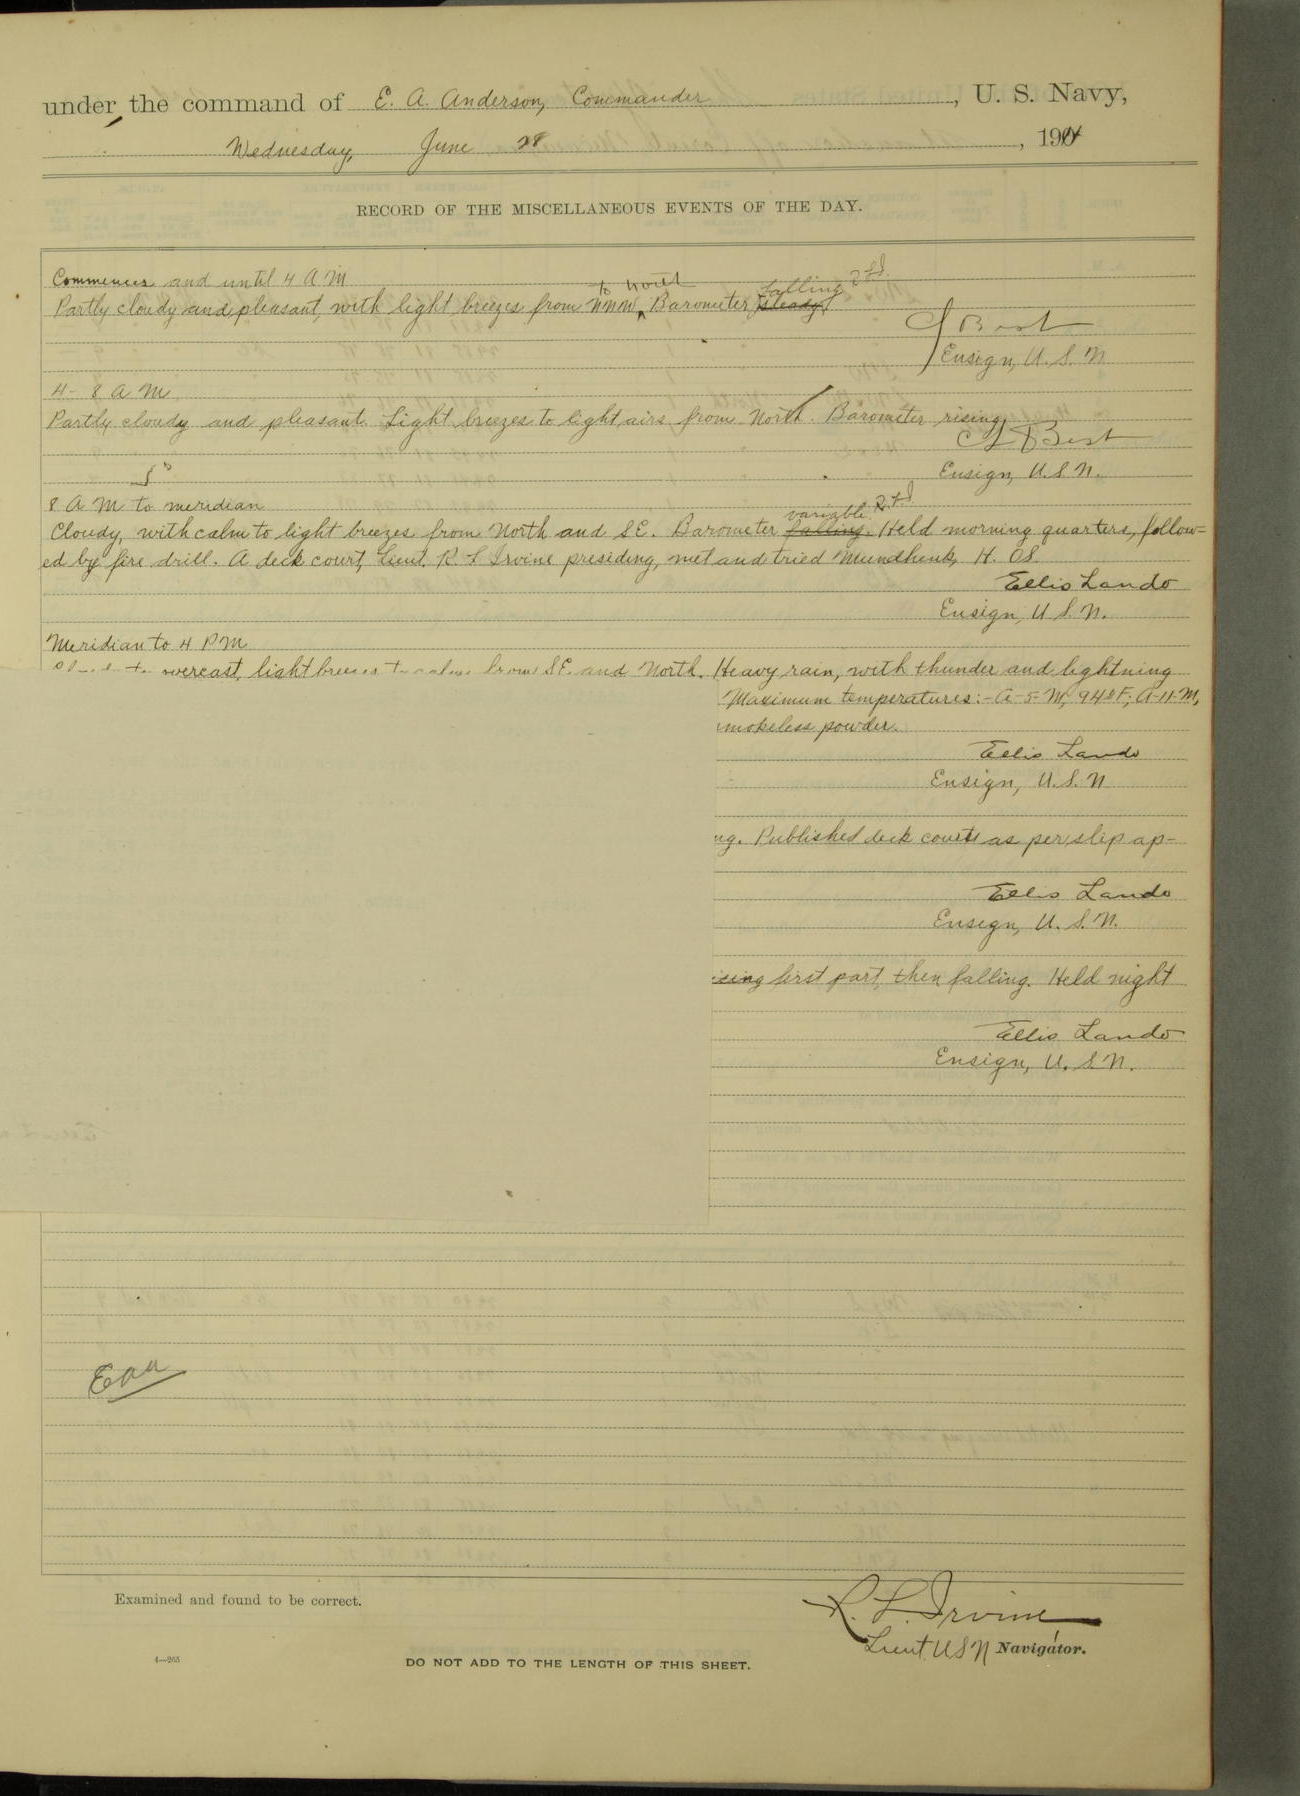 under the command of E. A. Anderson, Commander, U. S. Navy,
Wednesday, June 28, 1911
RECORD OF THE MISCELLANEOUS EVENTS OF THE DAY.
Commences and until 4 A M
to north falling
Partly cloudy and pleasant, with light breezes from NNW, Barometer steady.
C J Best
Ensign, U. S. N
4 - 8 A M
Partly cloudy and pleasant. Light breezes to light airs from North. Barometer rising.
C J Best
Ensign, U. S. N.
8 A M to meridian
variable
Cloudy, with calm to light breezes from North and SE. Barometer falling. Held morning quarters, follow=
ed by fire drill. A deck court, Lieut. R. L Irvine presiding, met and tried Mundhenk, H. OS.
Ellis Lando
Ensign, U S N.
Meridian to 4 P M
overcast, light breezes to calm from SE. and North. Heavy rain, with thunder and lightning
Maximum temperatures:- A-5-M, 94°F; A-11-M,
smokeless powder.
Ellis Lando
Ensign, U. S. N
ng. Published deck courts as per slip ap-
Ellis Lando
Ensign, U. S. N.
first part, then falling. Held night
Ellis Lando
Ensign, U. S. N.
EAA
Examined and found to be correct.
R. L. Irvine
Lieut. U S N Navigator.
4—265
DO NOT ADD TO THE LENGTH OF THIS SHEET.